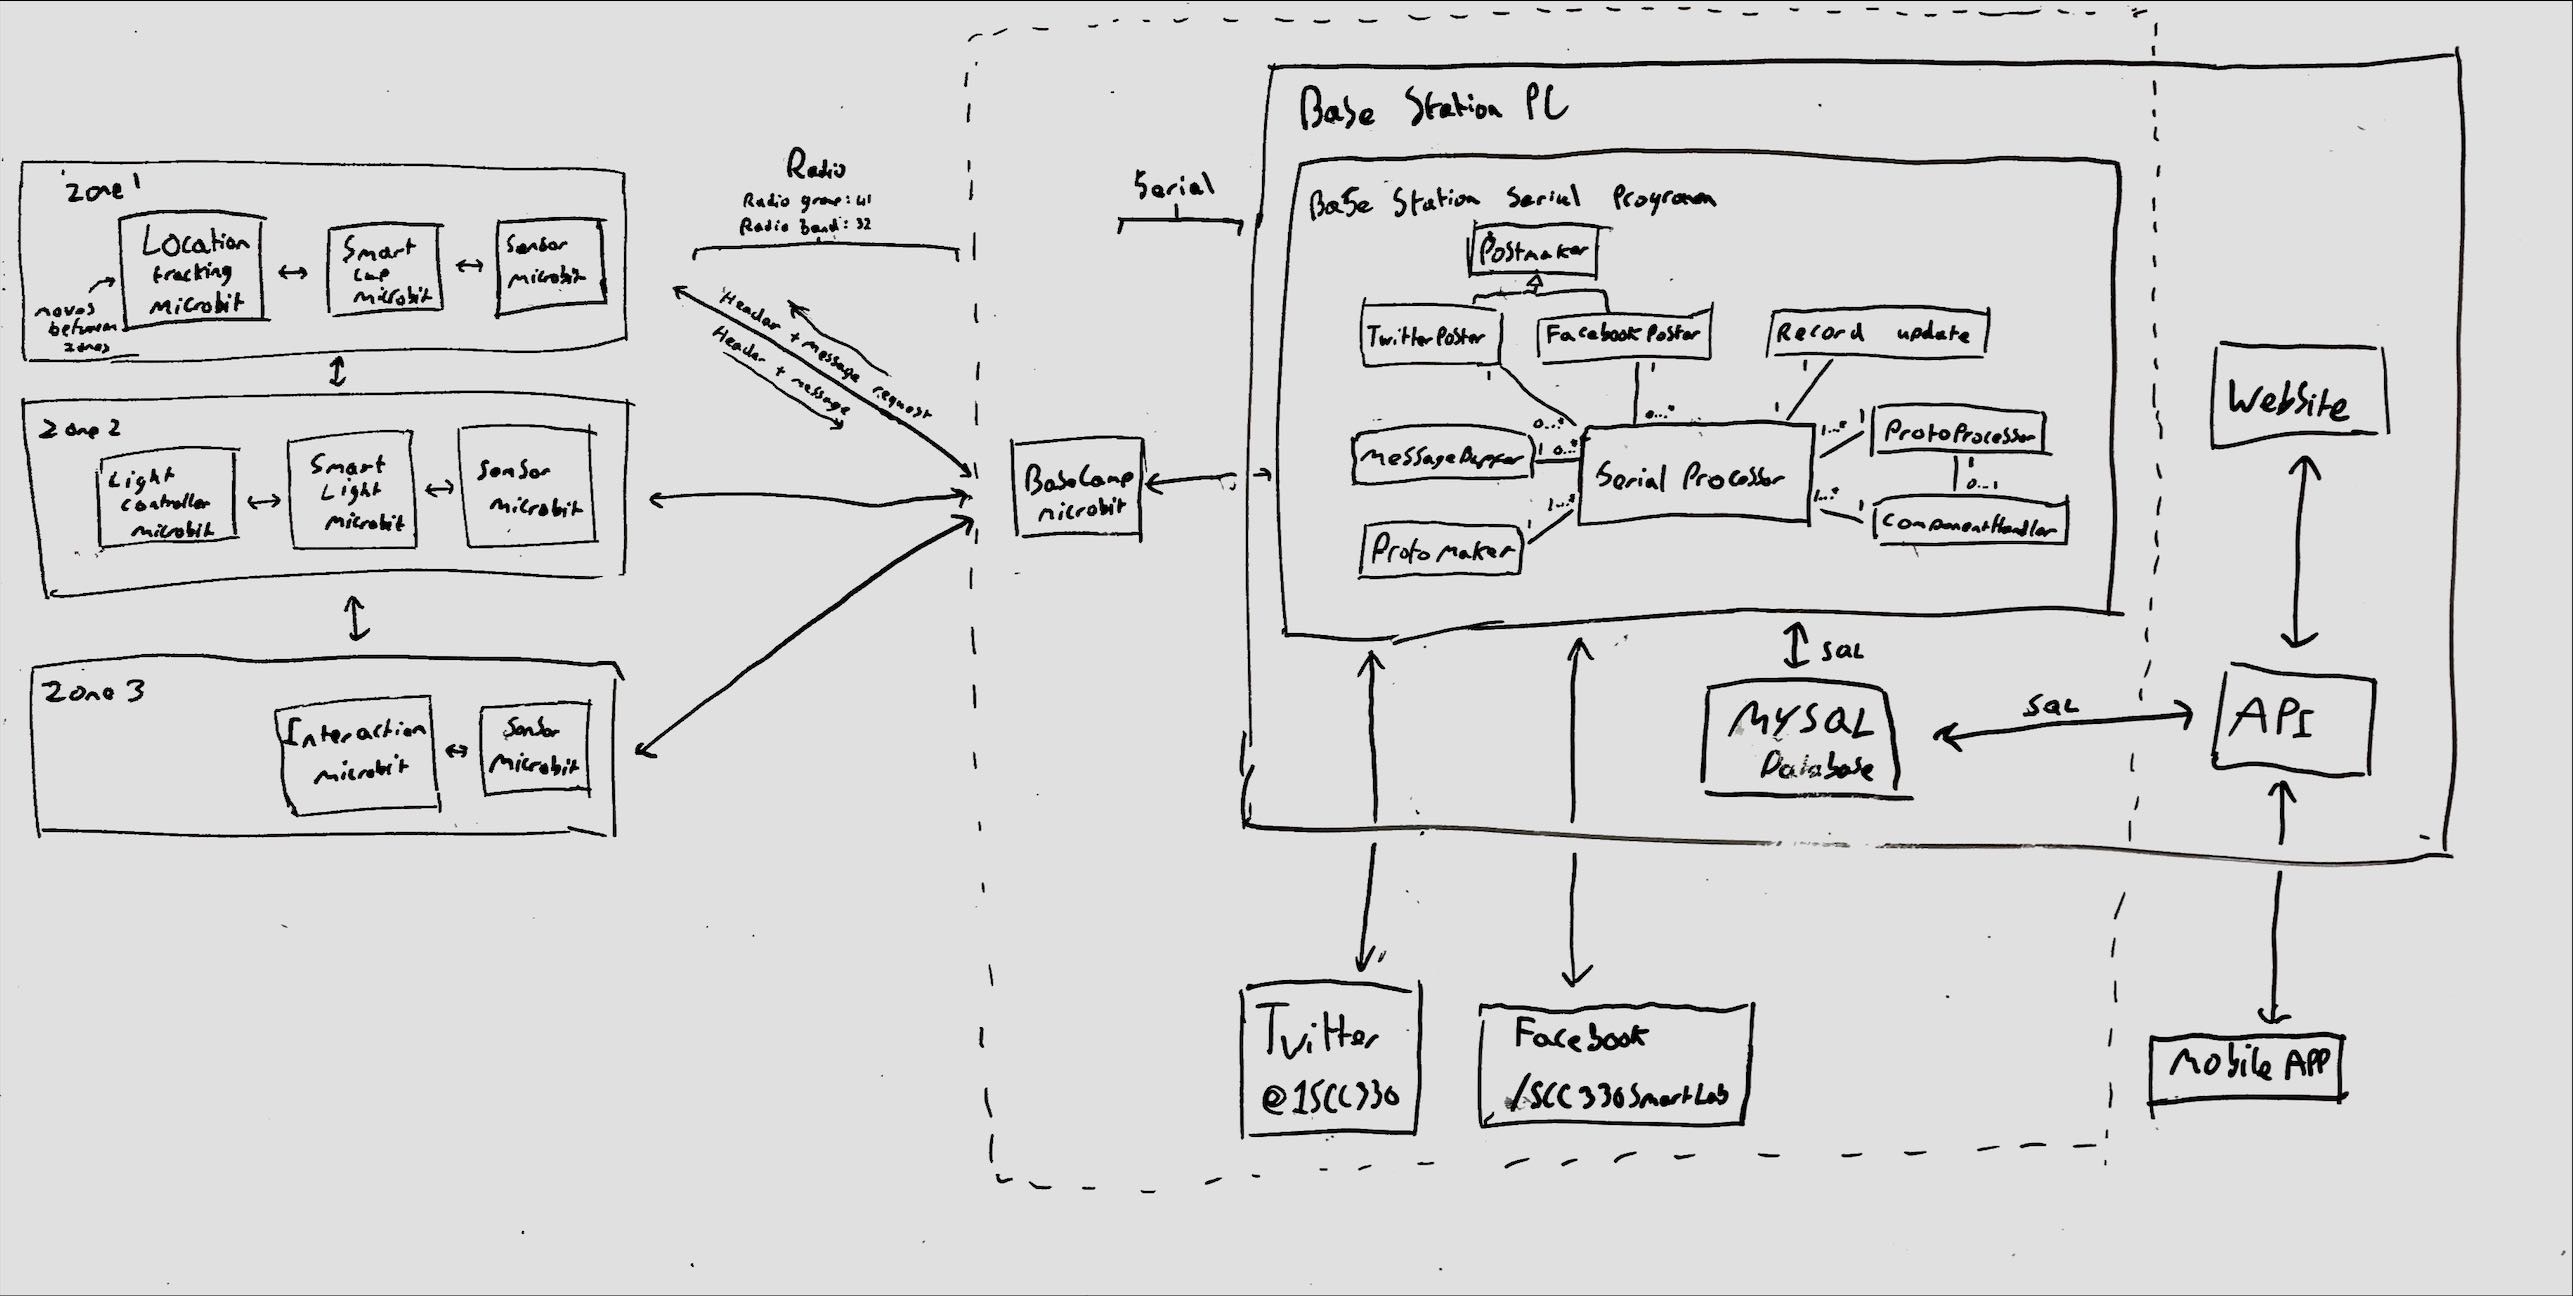 Zone 1
Location
tracking
microbit
moves
between
zones
Smart
cup
microbit
Sensor
microbit
Zone 2
Light
controller
microbit
Smart
Light
microbit
Sensor
microbit
Zone 3
Interaction
microbit
Sensor
microbit
Radio
Radio group: 41
Radio band: 32
Header + message request
Header + message
BaseCamp
microbit
Serial
Base Station PC
Base Station Serial Program
Postmaker
TwitterPoster
FacebookPoster
Record update
1
1
1
0...*
0...*
1
MessageBuffer
1 0...*
Serial Processor
1...* 1
ProtoProcessor
1
0...1
Proto maker
1
1...*
1...* 1
ComponentHandler
SQL
MYSQL
Database
SQL
Website
API
Mobile APP
Twitter
@1SCC330
Facebook
/SCC330SmartLab